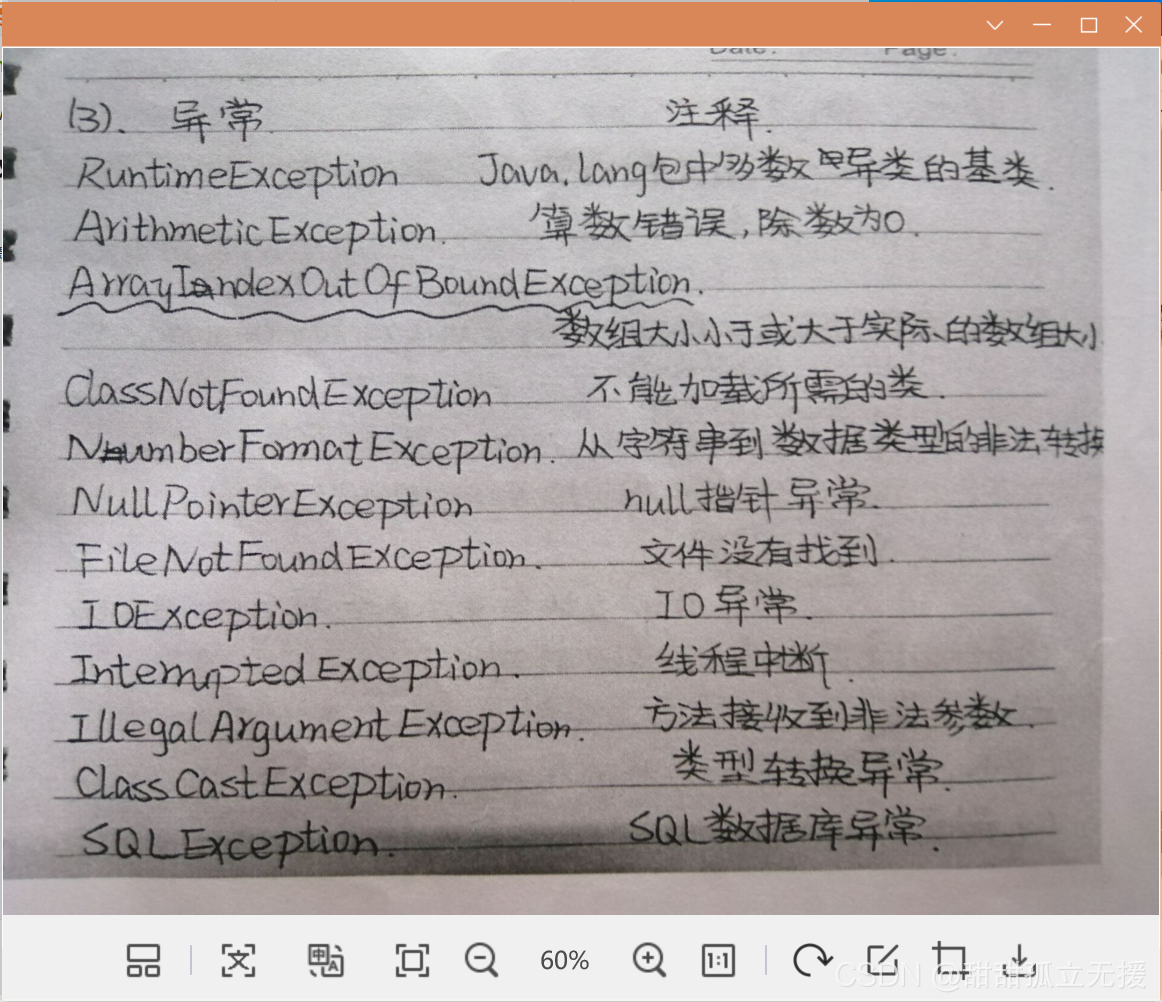 Date: Page:
(3). 异常. 注释.
RuntimeException Java.lang包中多数异类的基类.
ArithmeticException. 算数错误,除数为0.
ArrayIndexOutOfBoundException.
数组大小小于或大于实际的数组大小
ClassNotFoundException 不能加载所需的类.
NumberFormatException. 从字符串到数据类型的非法转换
NullPointerException null指针异常.
FileNotFoundException. 文件没有找到.
IOException. IO异常.
InterruptedException. 线程中断.
IllegalArgumentException. 方法接收到非法参数.
ClassCastException. 类型转换异常.
SQLException. SQL数据库异常.
60%
1:1
CSDN @甜甜孤立无援